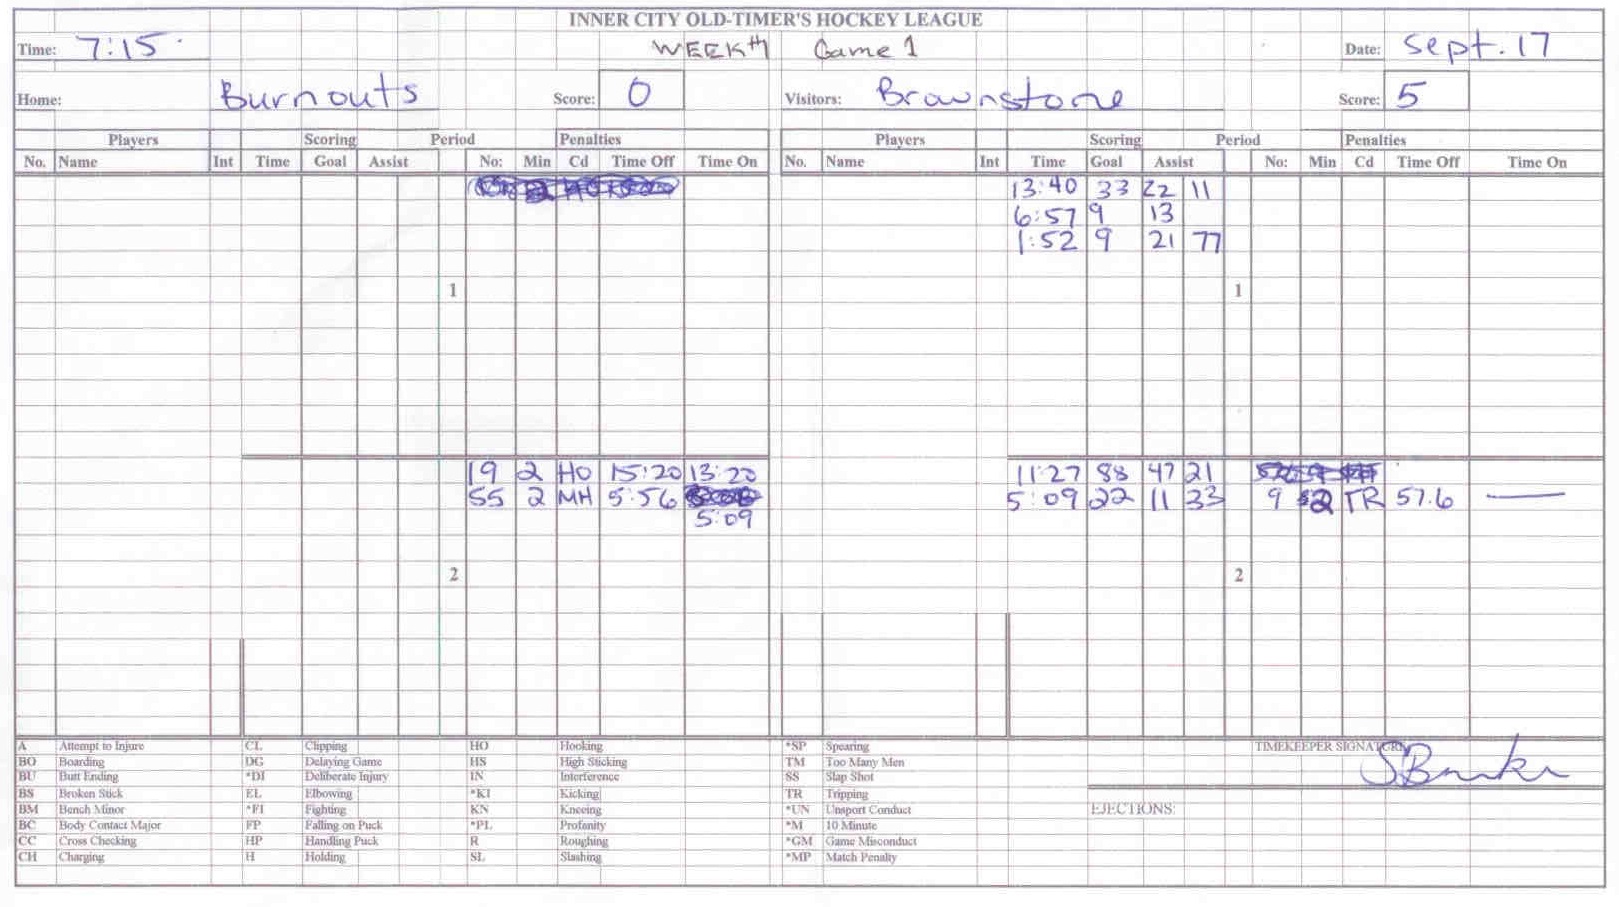 INNER CITY OLD-TIMER'S HOCKEY LEAGUE
Time: 7:15 WEEK#1 Game 1 Date: Sept. 17
Home: Burnouts Score: 0 Visitors: Brownstone Score: 5
Players Scoring Period Penalties Players Scoring Period Penalties
No. Name Int Time Goal Assist No: Min Cd Time Off Time On No. Name Int Time Goal Assist No: Min Cd Time Off Time On
13:40 33 22 11
6:57 9 13
1:52 9 21 77
1 1
19 2 HO 15:20 13:20 11:27 88 47 21
55 2 MH 5:56 5:09 22 11 33 9 2 TR 57.6 —
5:09
2 2
A Attempt to Injure CL Clipping HO Hooking *SP Spearing TIMEKEEPER SIGNATURE
BO Boarding DG Delaying Game HS High Sticking TM Too Many Men
BU Butt Ending *DI Deliberate Injury IN Interference SS Slap Shot
BS Broken Stick EL Elbowing *KI Kicking TR Tripping
BM Bench Minor *FI Fighting KN Kneeing *UN Unsport Conduct EJECTIONS:
BC Body Contact Major FP Falling on Puck *PL Profanity *M 10 Minute
CC Cross Checking HP Handling Puck R Roughing *GM Game Misconduct
CH Charging H Holding SL Slashing *MP Match Penalty